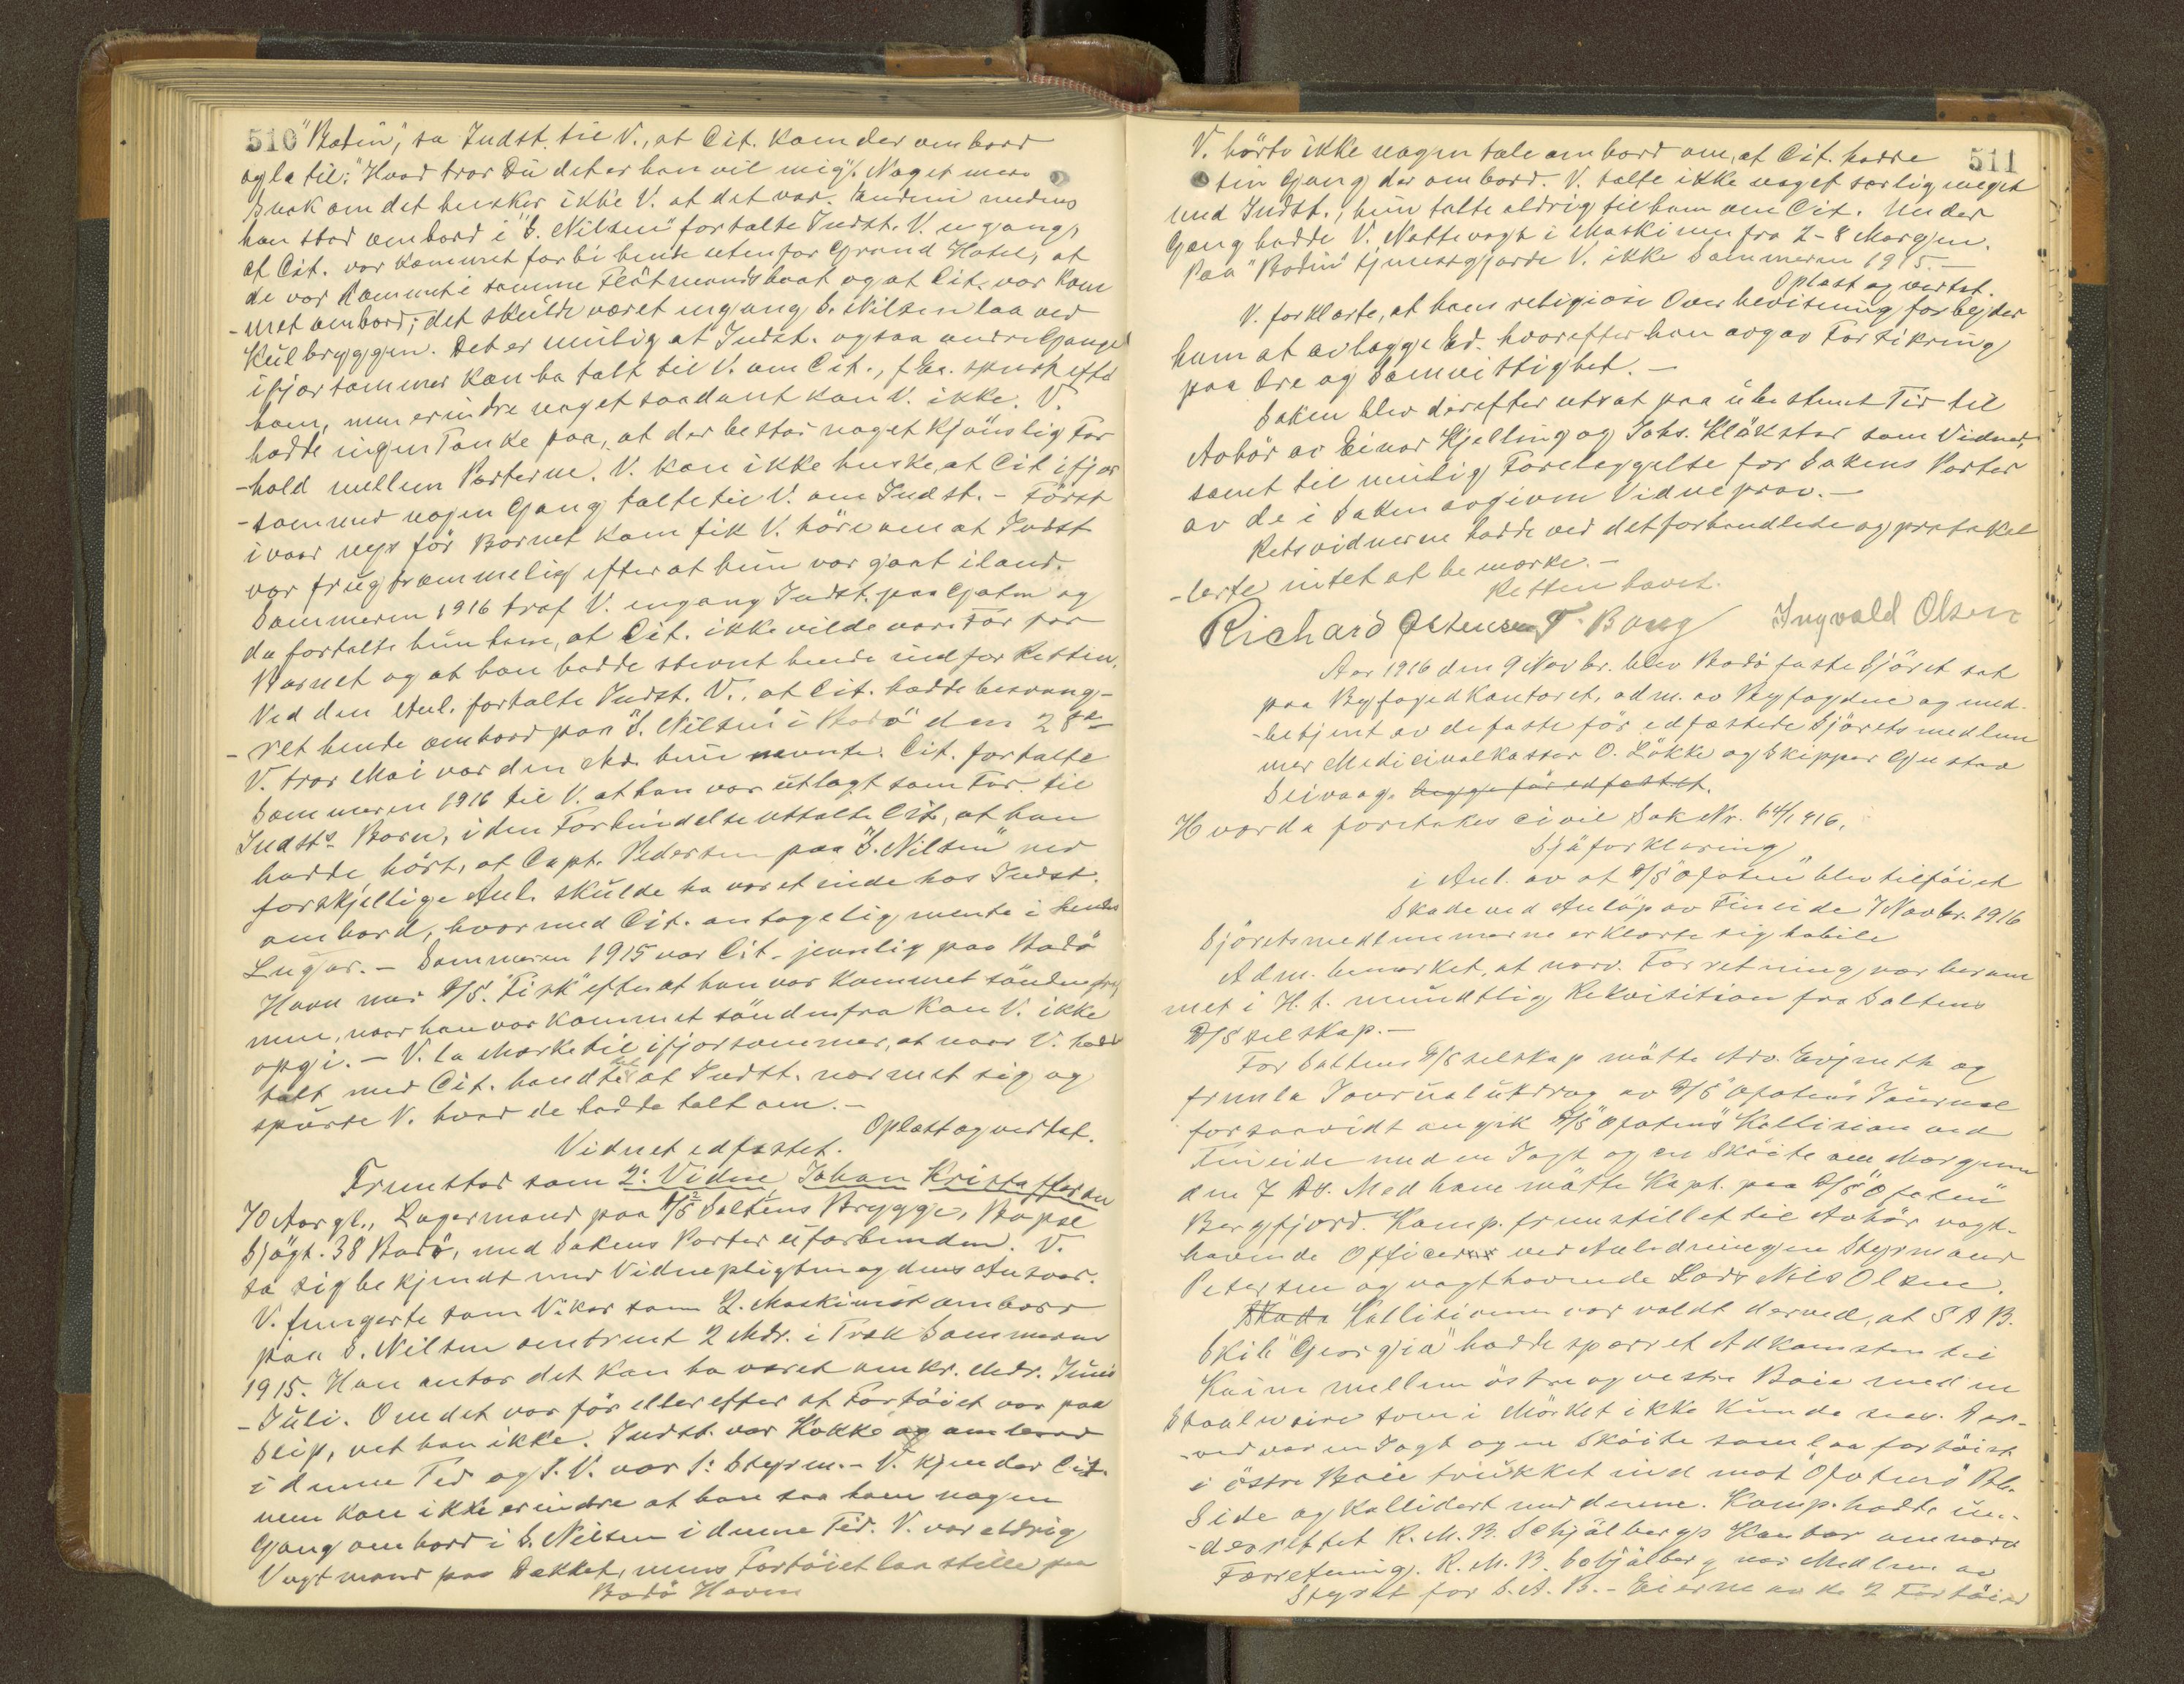 510 "Bodin", sa Indst. til V., at Cit. kom der ombord
og la til: "Hvad tror Du det er han vil mig". Noget mere
Snak om det husker ikke V. at det var. Endvi medens
han stod ombord i "S. Nilsen" fortalte Indst. V. engang,
at Cit. var kommet forbi hende utenfor Grand Hotel, at
de var kommet i samme Flötmandsbaat og at Cit. var kom
-met ombord; det skulde været engang S. Nilsen laa ved
Kulbryggen. Det er mulig at Indst. ogsaa andre Gange
ifjorsommer kan ha talt til V. om Cit., f.Ex. spurt efter
ham, men erindre noget saadant kan V. ikke. V.
hadde ingen Tanke paa, at der bestod noget kjönslig For
-hold mellem Parterne. V. kan ikke huske, at Cit ifjor
-sommer nogen Gang talte til V. om Indst. - Först
ivaar mens för Barnet kom fik V. höre om at Indst
var frugtsommelig efter at hun var gaat iland.
Sommeren 1916 traf V. engang Indst. paa Gaten og
da fortalte hun ham, at Cit. ikke vilde være Far for
Barnet og at han hadde stevnt hende ind for Retten.
Ved den Anl. fortalte Indst. V., at Cit. hadde besvang-
-ret hende ombord paa "S. Nilsen" i Bodö den 28de
V. tror Mai var den Md. hun nævnte. Cit. fortalte
Sommeren 1916 til V. at han var utlagt som Far til
Indsts. Barn, i den Forbindelse uttalte Cit., at han
hadde hört, at Capt. Pedersen paa "S. Nilsen" ved
forskjellige Anl. skulde ha været inde hos Indst.
ombord, hvormed Cit. antagelig mente i hendes
Lugar. - Sommeren 1915 var Cit. jevnlig paa Bodö
Havn med D/S. "Fisk" efter at han var kommet söndenfra
men, naar han var kommet söndenfra kan V. ikke
opgi. - V. la Mærke til ifjorsommer, at naar V. hadde
talt med Cit. hændte det at Indst. nærmet sig og
spurte V. hvad de hadde talt om. -
Oplæst og vedtat.
Vidnet edfæstet.
Fremstod som 2: Vidne Johan Kristoffersen
70 Aar gl., Lagermand paa D/S Saltens Brygge, Bopæl
Sjögt. 38 Bodö, med Sakens Parter uforbunden. V.
sa sig bekjendt med Vidnepligten og dens Ansvar.
V. fungerte som Vikar som 2. Maskinist ombord
paa S. Nilsen omtrent 2 Mdr. i Træk Sommeren
1915. Han antar det kan ha været omkr. Mdr. Juni
-Juli. Om det var för eller efter at Fartöiet var paa
Slip, vet han ikke. Indst. var Kokke og ombord
i denne Tid og S. V. var 1: Styrm. - V. kjender Cit.
men kan ikke erindre at han saa ham nogen
Gang ombord i S. Nilsen i denne Tid. V. var aldrig
Vagtmand paa Dækket, mens Fartöiet laa stille paa
Bodö Havn
511
V. hörte ikke nogen tale ombord om, at Cit. hadde
sin Gang der ombord. V. talte ikke noget særlig meget
med Indst., hun talte aldrig til ham om Cit. Under
Gang hadde V. Nattevagt i Maskinen fra 2-8 Morgen.
Paa "Bodin" tjenestgjorde V. ikke Sommeren 1915. -
Oplæst og vedtat.
V. forklarte, at hans religiöse Overbevisning forbyder
ham at avlægge Ed. hvorefter han avgav Forsikring
paa Ære og Samvittighet. -
Saken blev derefter utsat paa ubestemt Tid til
Avhör av Einar Hjelling og Johs. Klökstad som Vidner,
samt til mulig Forelæggelse for Sakens Parter
av de i Saken avgivne Vidneprov. -
Retsvidnerne hadde ved det forhandlede og protokol
-lerte intet at bemærke. -
Retten hævet.
Richard Ostensen T. Bang Ingvald Olsen
Aar 1916 den 9 Novbr. blev Bodö faste Sjöret sat
paa Byfogedkontoret, adm. av Byfogden og med-
-betjent av de faste för edfæstede Sjöretsmedlem
mer Medicinalkasser O. Lökke og Skipper Gustav
Seivaag. begge för edfæstet.
Hvorda foretokes civil Sak Nr. 64/1916.
Sjöforklaring
i Anl. av at D/S "Ofoten" blev tilföiet
Skade ved Anlöp av Fineide 7 Novbr. 1916
Sjöretsmedlemmerne erklærte sig habile
Adm. bemærket, at nærv. Forretning var beram
met i H.t. mundtlig Rekvisition fra Saltens
D/S selskap. -
For Saltens D/S selskap mötte Adv. Evjenth og
fremla Journalutdrag av D/S "Ofotens" Journal
forsaavidt angik D/S "Ofotens" Kollision ved
Fineide med en Jagt og en Sköite om Morgenen
den 7 ds. Med ham mötte Kapt. paa D/S "Ofoten"
Bergfjord. Komp. fremstillet til Avhör vagt-
havende Officer ved Anledningen Styrmand
Petersen og vagthavende Lods Nils Olsen.
Skade Kollisionen var voldt derved, at S A B.
Skib "Georgia" hadde sperret Adkomsten til
Kaien mellem östre og vestre Boie med en
Staalwaire som i Mörket ikke kunde sees. Der-
-ved var en Jagt og en Sköite som laa fortöiet
i östre Boie trukket ind mot "Ofotens" Bb.
Side og kollidert med denne. Komp. hadde un-
-derrettet R. M. B. Schjölbergs Kontor om nærv
Forretning. R. M. B. Schjölberg var Medlem av
Styret for S. A. B. - Eierne av de 2 Fartöier